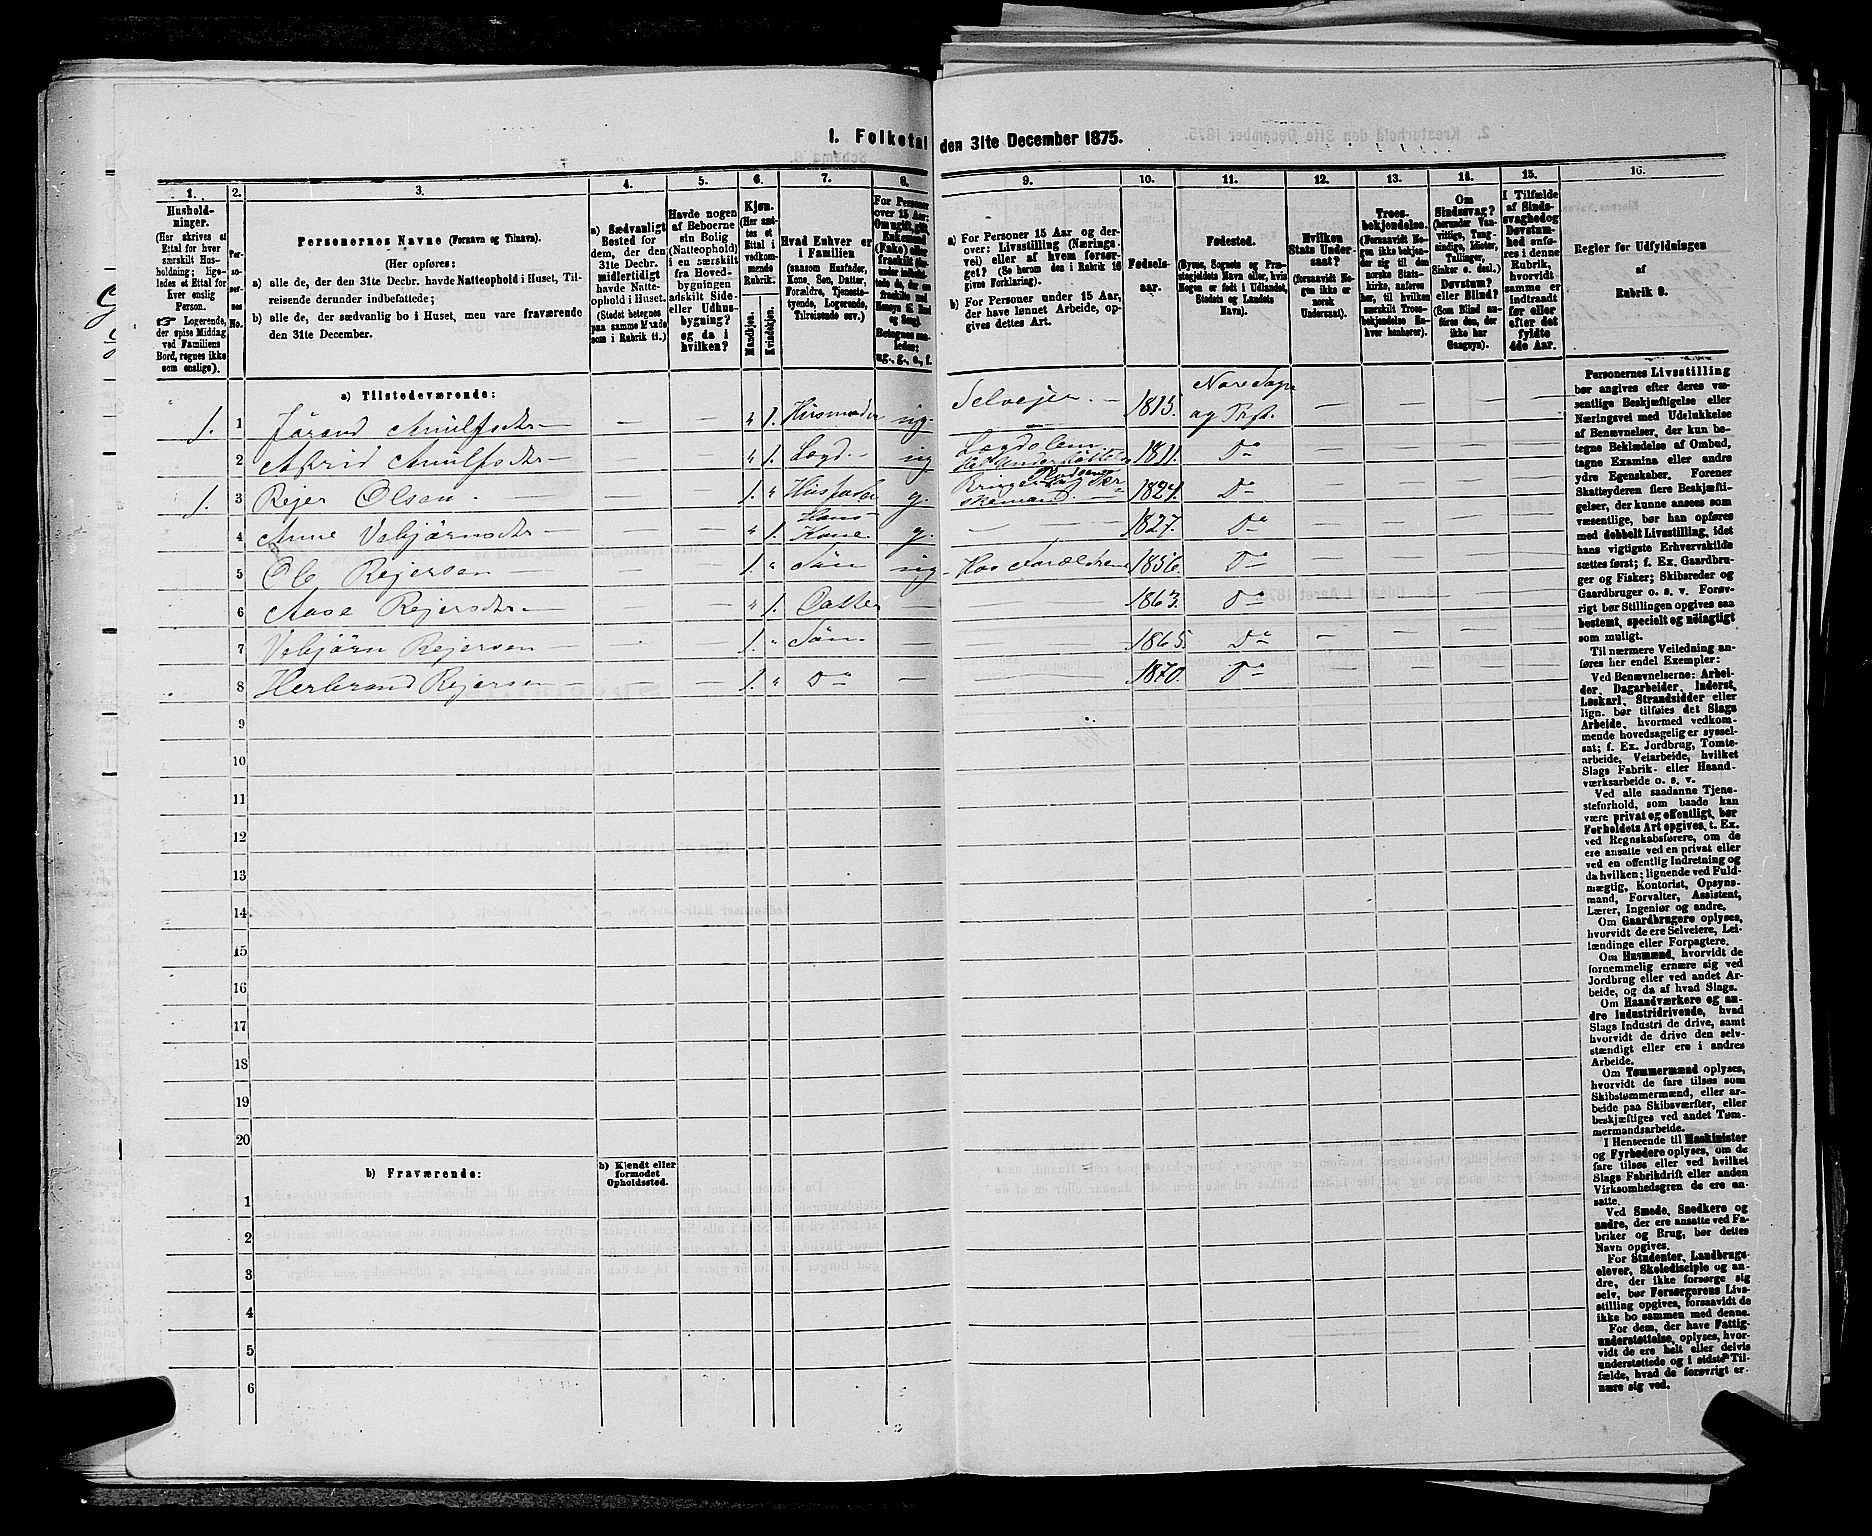 1. Folketal den 31te December 1875.
1. 2. 3. 4. 5. 6. 7. 8. 9. 10. 11. 12. 13. 14. 15. 16.
Hushold-
ninger.
(Her skrives et
Ettal for hver
særskilt Hus-
holdning; lige-
ledes et Ettal for
hver enslig
Person.
Logerende,
der spise Middag
ved Familiens
Bord, regnes ikke
som enslige).
Per-
so-
ner-
nes
No.
Personernes Navne (Fornavn og Tilnavn).
(Her opføres:
a) alle de, der den 31te Decbr. havde Natteophold i Huset, Til-
reisende derunder indbefattede;
b) alle de, der sædvanlig bo i Huset, men vare fraværende
den 31te December.
a) Sædvanligt
Bosted for
dem, der den
31te Decbr.
midlertidigt
havde Natte-
ophold i Huset.
(Stedet betegnes
paa samme Maade
som i Rubrik 11.)
Havde nogen
af Beboerne
sin Bolig
(Natteophold)
i en særskilt
fra Hoved-
bygningen
adskilt Side-
eller Udhus-
bygning?
og da i
hvilken?
Kjøn.
(Her sæt-
tes et
Ettal i
vedkom-
mende
Rubrik.)
Mandkjøn.
Kvindekjøn.
Hvad Enhver er
i Familien
(saasom Husfader,
Kone, Søn, Datter,
Forældre, Tjeneste-
tyende, Logerende,
Tilreisende osv.)
For Personer
over 15 Aar:
a) For Personer 15 Aar og der-
over: Livsstilling (Nærings-
vei) eller af hvem forsør-
get? (Se herom den i Rubrik 16
givne Forklaring).
b) For Personer under 15 Aar,
der have lønnet Arbeide, op-
gives dettes Art.
Fødsels-
aar.
Fødested.
(Byens, Sognets og Præ-
stegjeldets Navn eller, hvis
Nogen er født i Udlandet,
Stedets og Landets
Navn).
Hvilken
Stats Under-
saat?
(forsaavidt No-
gen ikke er
norsk
Undersaat).
Troes-
bekjendelse.
(Forsaavidt No-
gen ikke bekjen-
der sig til den
norske Stats-
kirke, anføres
her, til hvilken
særskilt Troes-
bekjendelse En-
hver henhører).
Om
Sindssvag?
(herunder Van-
vittige, Tung-
sindige, Idioter,
Tullinger,
Sinker o. desl.)
Døvstum?
eller Blind?
(Som Blind an-
føres den, der
ikke har
Gangsyn).
I Tilfælde
af Sinds-
svaghed og
Døvstum-
hed anfø-
res i denne
Rubrik,
hvorvidt
samme er
indtraadt
før eller
efter det
fyldte
4de Aar.
Regler for Udfyldningen
af
Rubrik 9.
a) Tilstedeværende:
1. 1 Jørand Arnulfsdtr — — — " 1. Husmoder ug. Selvejer — 1815. Nore Sogn og Prst. — — — —
2 Astrid Arnulfsdtr — — — " 1. Lægd — ug Lægdslem Helt Understøttet 1811. Do — — — —
1. 3 Rejer Olsen — — — 1. " Husfader g. 1821. Do — — — —
4 Anne Vebjørnsdtr — — — " 1. Hans Kone g. — 1827. Do — — — —
5 Ole Rejersen — — — 1. " Søn ug Hos Forældrene 1856. Do — — — —
6 Aase Rejersdtr — — — " 1. Datter — — 1863. Do — — — —
7 Vebjørn Rejersen — — — 1. " Søn — — 1865. Do — — — —
8 Herbrand Rejersen — — — 1. " Do — — 1870. Do — — — —
9
10
11
12
13
14
15
16
17
18
19
20
b) Fraværende:
b) Kjendt eller
formodet
Opholdssted.
1
2
3
4
5
6
Personernes Livsstilling
bør angives efter deres væ-
sentlige Beskjæftigelse eller
Næringsvei med Udelukkelse
af Benævnelser, der kun be-
tegne Beklædelse af Ombud,
tagne Examina eller andre
ydre Egenskaber. Forener
Skatteyderen flere Beskjæfti-
gelser, der kunne ansees som
væsentlige, bør han opføres
med dobbelt Livsstilling, idet
hans vigtigste Erhvervskilde
sættes først; f. Ex. Gaardbru-
ger og Fisker; Skibsreder og
Gaardbruger o. s. v. Forøv-
rigt bør Stillingen opgives saa
bestemt, specielt og nøiagtigt
som muligt.
Til nærmere Veiledning an-
føres her endel Exempler:
Ved Benævnelserne: Arbei-
der, Dagarbeider, Inderst,
Løskarl, Strandsidder eller
lign. bør tilføies det Slags
Arbeide, hvormed vedkom-
mende hovedsagelig er syssel-
sat; f. Ex. Jordbrug, Tomte-
arbeide, Veiarbeide, hvilket
Slags Fabrik- eller Haand-
værksarbeide o. s. v.
Ved alle saadanne Tjene-
steforhold, som baade kan
være privat og offentligt, bør
Forholdets Art opgives, t. Ex.
ved Regnskabsførere, om de
ere ansatte ved en privat eller
ved en offentlig Indretning og
da hvilken; lignende ved Fuld-
mægtig, Kontorist, Opsyns-
mand, Forvalter, Assistent,
Lærer, Ingeniør og andre.
Om Gaardbrugere oplyses,
hvorvidt de ere Selveiere, Lei-
lændinge eller Forpagtere.
Om Husmænd, hvorvidt de
fornemmelig ernære sig ved
Jordbrug eller ved andet Ar-
beide, og da af hvad Slags.
Om Haandværkere og an-
dre Industridrivende, hvad
Slags Industri de drive, samt
hvorvidt de drive den selv-
stændigt eller ere i andres
Arbeide.
Om Tømmermænd oplyses,
hvorvidt de fare tilsøs som
Skibstømmermænd, eller ar-
beide paa Skibsværfter, eller
beskjæftiges ved andet Tøm-
mermandsarbeide.
I Henseende til Maskinister
og Fyrbødere oplyses, om de
fare tilsøs eller ved hvilket
Slags Fabrikdrift eller anden
Virksomhedsgren de ere an-
satte.
Ved Smede, Snedkere og
andre, der ere ansatte ved Fa-
briker og Brug, bør dettes
Navn opgives.
For Studenter, Landbrugs-
elever, Skoledisciple og an-
dre, der ikke forsørge sig
selv, bør Forsørgerens Livs-
stilling opgives, forsaavidt de
ikke bo sammen med denne.
For dem, der have Fattig-
understøttelse, oplyses, hvor-
vidt de ere helt eller delvis
understøttede og i sidste Til-
fælde, hvad de forøvrigt er-
nære sig ved.